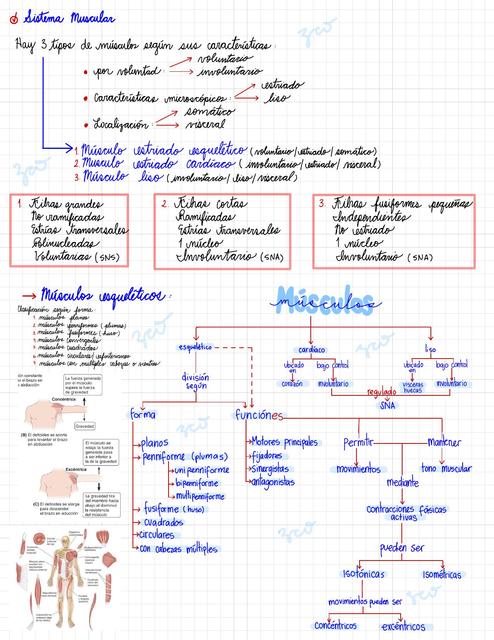 Sistema Muscular
Hay 3 tipos de músculos según sus características:
• por voluntad: → voluntario
→ involuntario
• Características microscópicos: → estriado
→ liso
• Localización: → somático
→ visceral
1. Músculo estriado esquelético (voluntario/estriado/somático)
2. Musculo estriado cardiaco (involuntario/estriado/visceral)
3. Músculo liso (involuntario/liso/visceral)
1. Fibras grandes
No ramificadas
Estrías transversales
Polinucleadas
Voluntarias (SNS)
2. Fibras cortas
Ramificadas
Estrías transversales
1 núcleo
Involuntario (SNA)
3. Fibras fusiformes pequeñas
Independientes
No estriado
1 núcleo
Involuntario (SNA)
→ Músculos esqueléticos:
Clasificación según forma
1 músculos planos
2 músculos penniformes (plumas)
3 músculos fusiformes (huso)
4 músculos convergentes
5 músculos cuadrados
6 músculos circulares/esfinterianos
7 músculos con multiples cabezas o vientres
La fuerza generada por el músculo supera la fuerza de gravedad
Concéntrica
Gravedad
(B) El deltoides se acorta para levantar el brazo en abducción
El músculo se relaja y la fuerza generada pasa a ser inferior a la de la gravedad
Excéntrica
(C) El deltoides se alarga para descender el brazo en aducción
La gravedad tira del miembro hacia abajo al disminuir la resistencia del músculo
músculos
esquelético
cardiaco
liso
ubicado en
bajo control
ubicado en
bajo control
corazón
involuntario
vísceras huecas
involuntario
regulado
SNA
división según
forma
funciónes
planos
penniforme (plumas)
unipenniforme
bipenniforme
multipenniforme
fusiforme (huso)
cuadrados
circulares
con cabezas múltiples
Motores principales
fijadores
sinergistas
antagonistas
Permitir
mantener
movimientos
tono muscular
mediante
contracciones fásicas activas
pueden ser
isotónicas
isométricas
movimientos pueden ser
concéntricos
excéntricos
zco